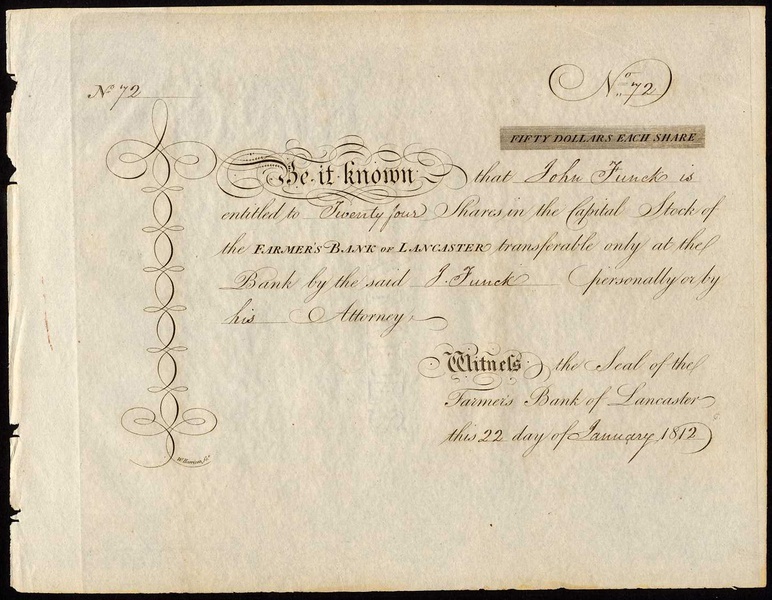 No 72
No 72
FIFTY DOLLARS EACH SHARE
Be it known that John Funck is
entitled to Twenty four Shares in the Capital Stock of
the FARMER'S BANK OF LANCASTER transferable only at the
Bank by the said J. Funck personally or by
his Attorney
Witness the Seal of the
Farmer's Bank of Lancaster
this 22 day of January 1812